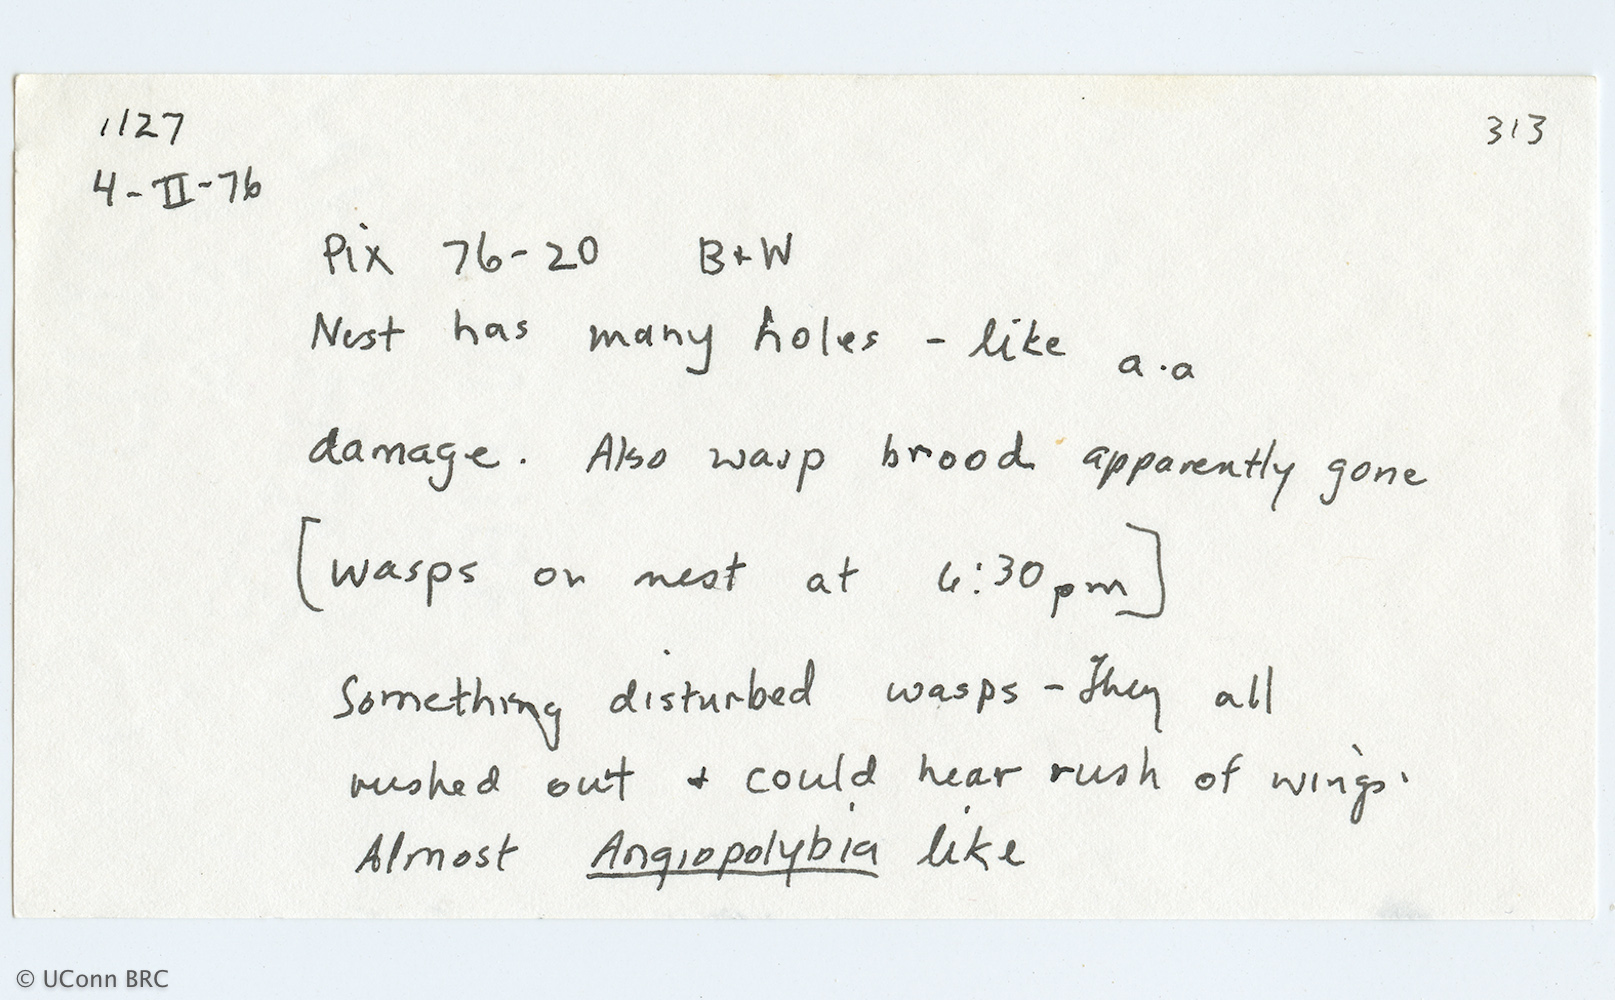 1127
313
4-II-76
Pix 76-20 B+W
Nest has many holes - like a.a
damage. Also wasp brood apparently gone
[wasps on nest at 6:30pm]
Something disturbed wasps - They all
rushed out + could hear rush of wings.
Almost Angiopolybia like
© UConn BRC